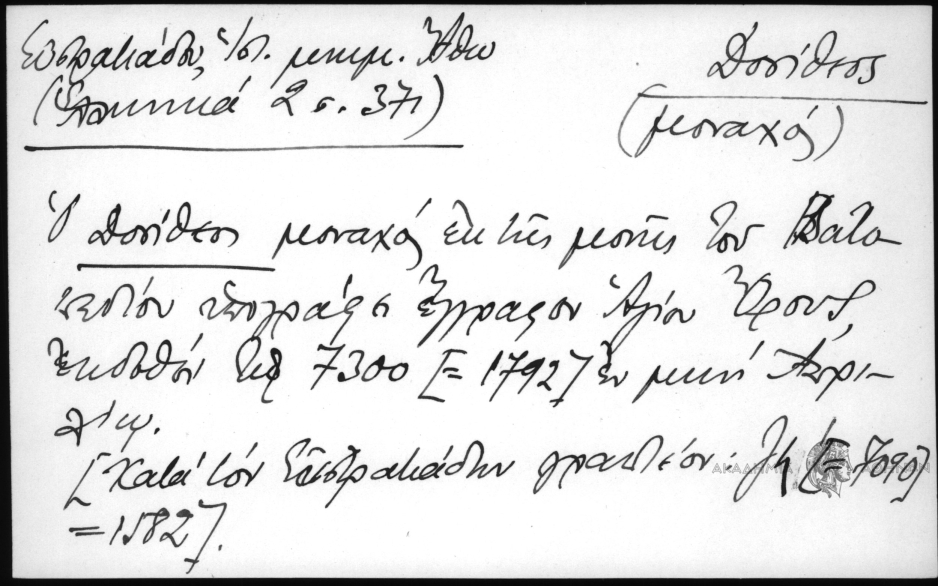 Εὐστρατιάδου, Ἱστ. μνημ. Ἄθω
(Ἑλληνικά 2 σ. 371)
Δοσίθεος
(μοναχός)
Ὁ Δοσίθεος μοναχός ἐκ τῆς μονῆς τοῦ Βατο-
πεδίου ὑπογράφει ἔγγραφον Ἁγίου Ὄρους,
ἐκδοθέν τῷ 7300 [= 1792] ἐν μηνί Ἀπρι-
λίῳ.
[Κατά τόν Εὐστρατιάδην γραπτέον: [= 7090]
= 1582].
ΑΚΑΔΗΜΙΑ ΑΘΗΝΩΝ